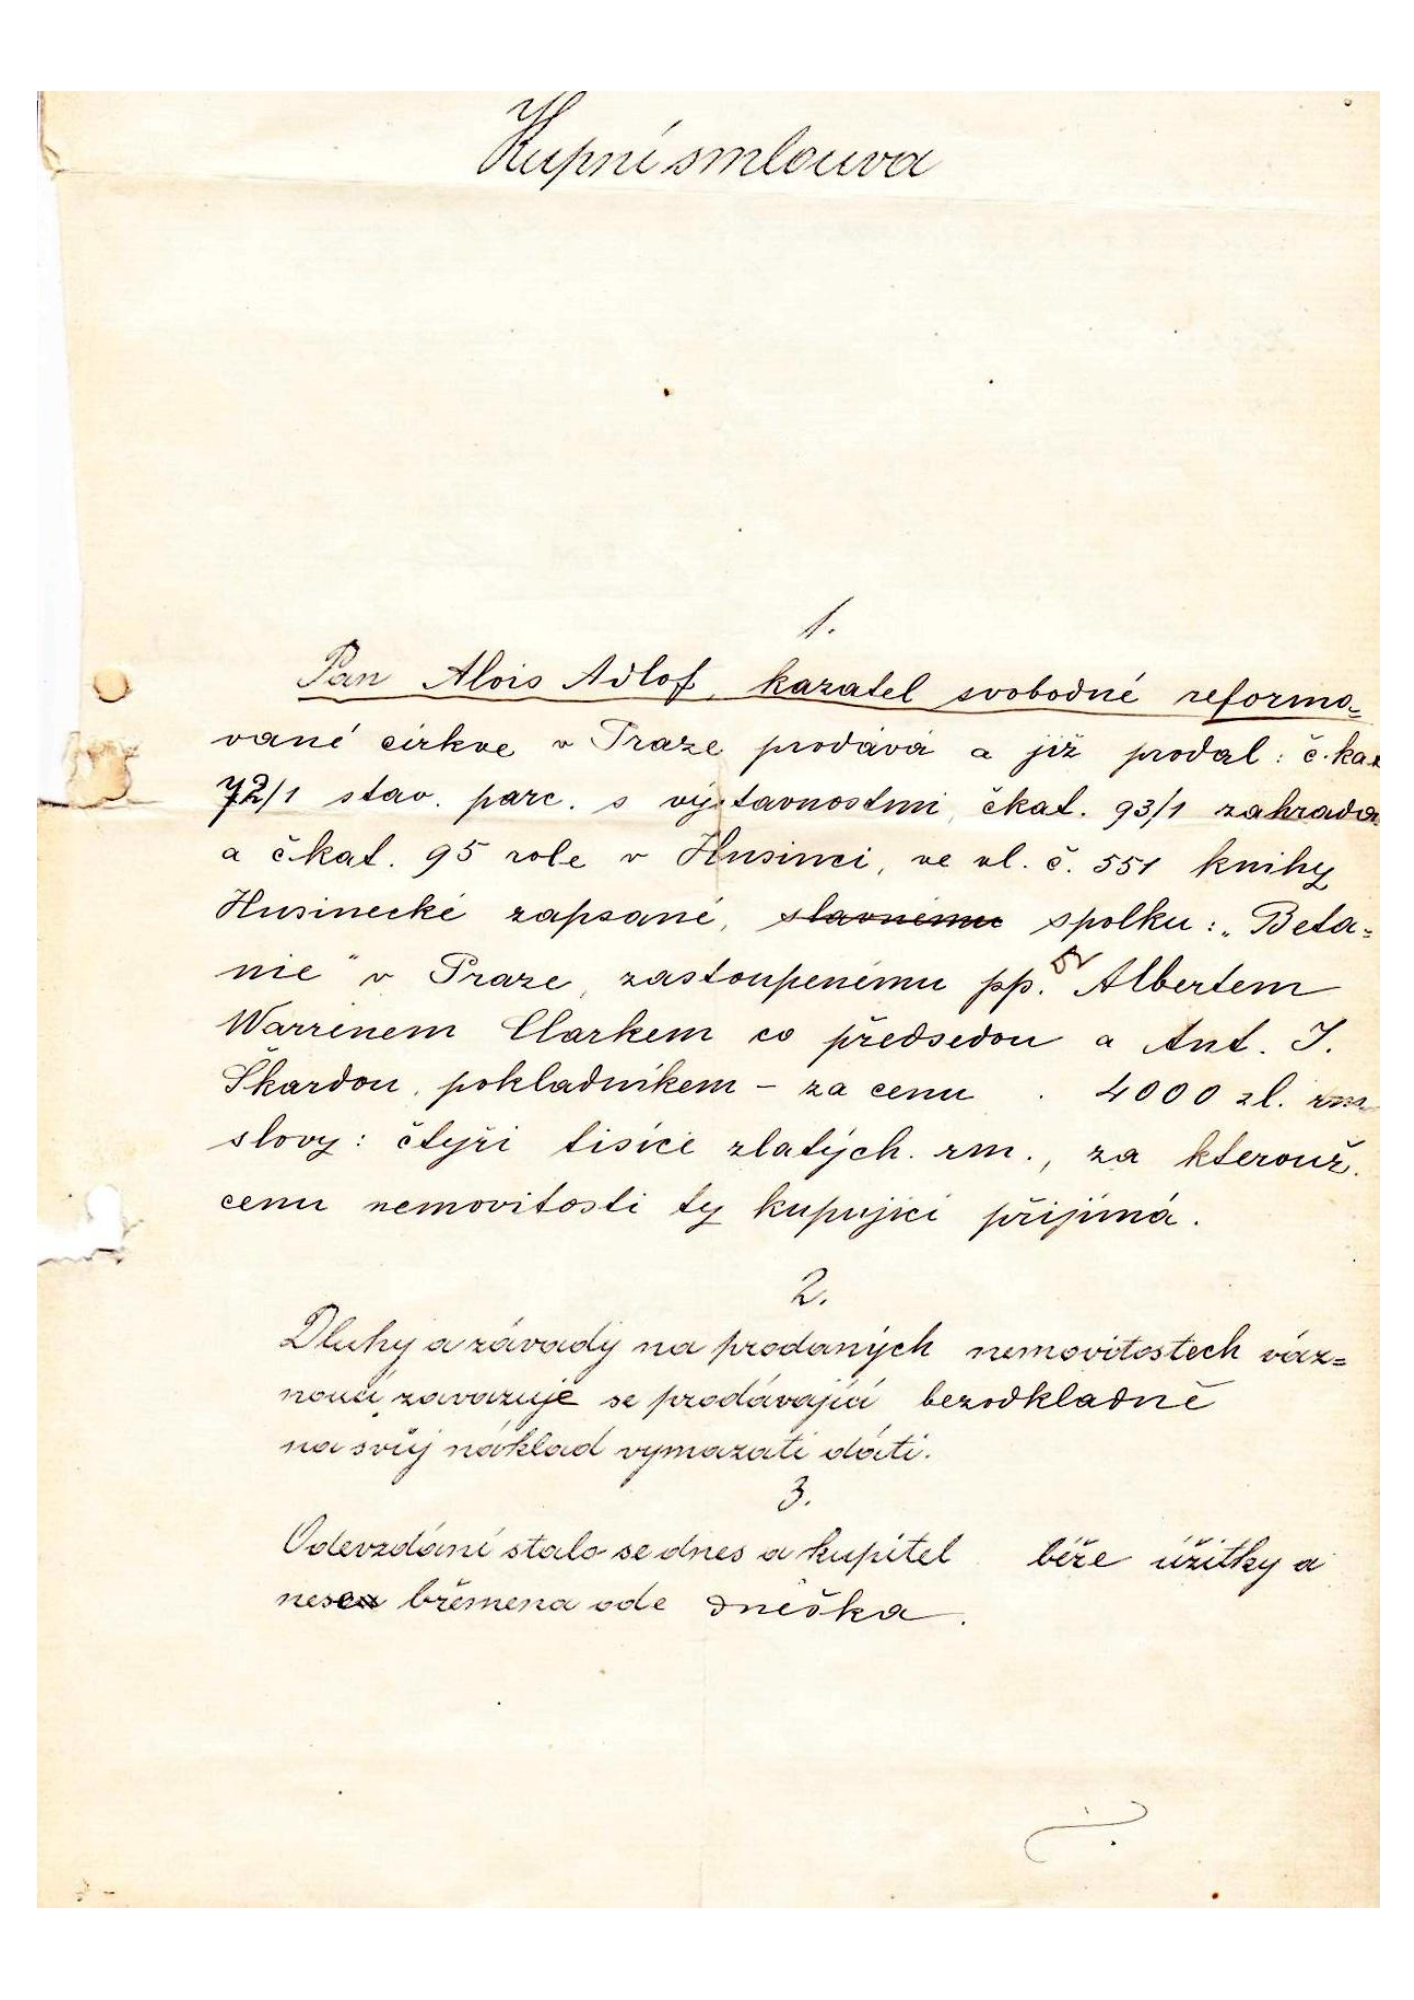 Kupní smlouva
1.
Pan Alois Adlof, kazatel svobodné reformo=
vané církve v Praze prodává a již prodal: č. kat
72/1 stav. parc. s výstavnostmi, čkat. 93/1 zahrada
a čkat. 95 role v Husinci, ve vl. č. 551 knihy
Husinecké zapsané, slavnému spolku: „Beta=
nie" v Praze, zastoupenému pp. Albertem
Warrenem Clarkem co předsedou a Ant. J.
Škardou, pokladníkem – za cenu . 4000 zl. rm
slovy: čtyři tisíce zlatých. rm., za kterouž.
cenu nemovitosti ty kupující přijímá.
2.
Dluhy a závady na prodaných nemovitostech váz=
noucí zavazuje se prodávající bezodkladně
na svůj náklad vymazati dáti.
3.
Odevzdání stalo se dnes a kupitel béře úžitky a
nese břemena ode dneška.